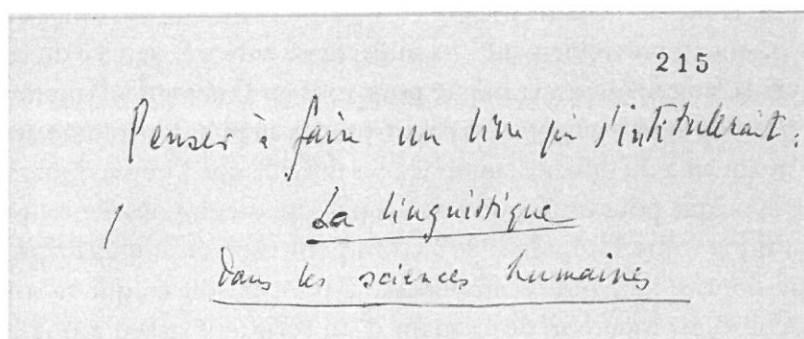 215
Penser à faire un livre qui s'intitulerait :
La linguistique
dans les sciences humaines